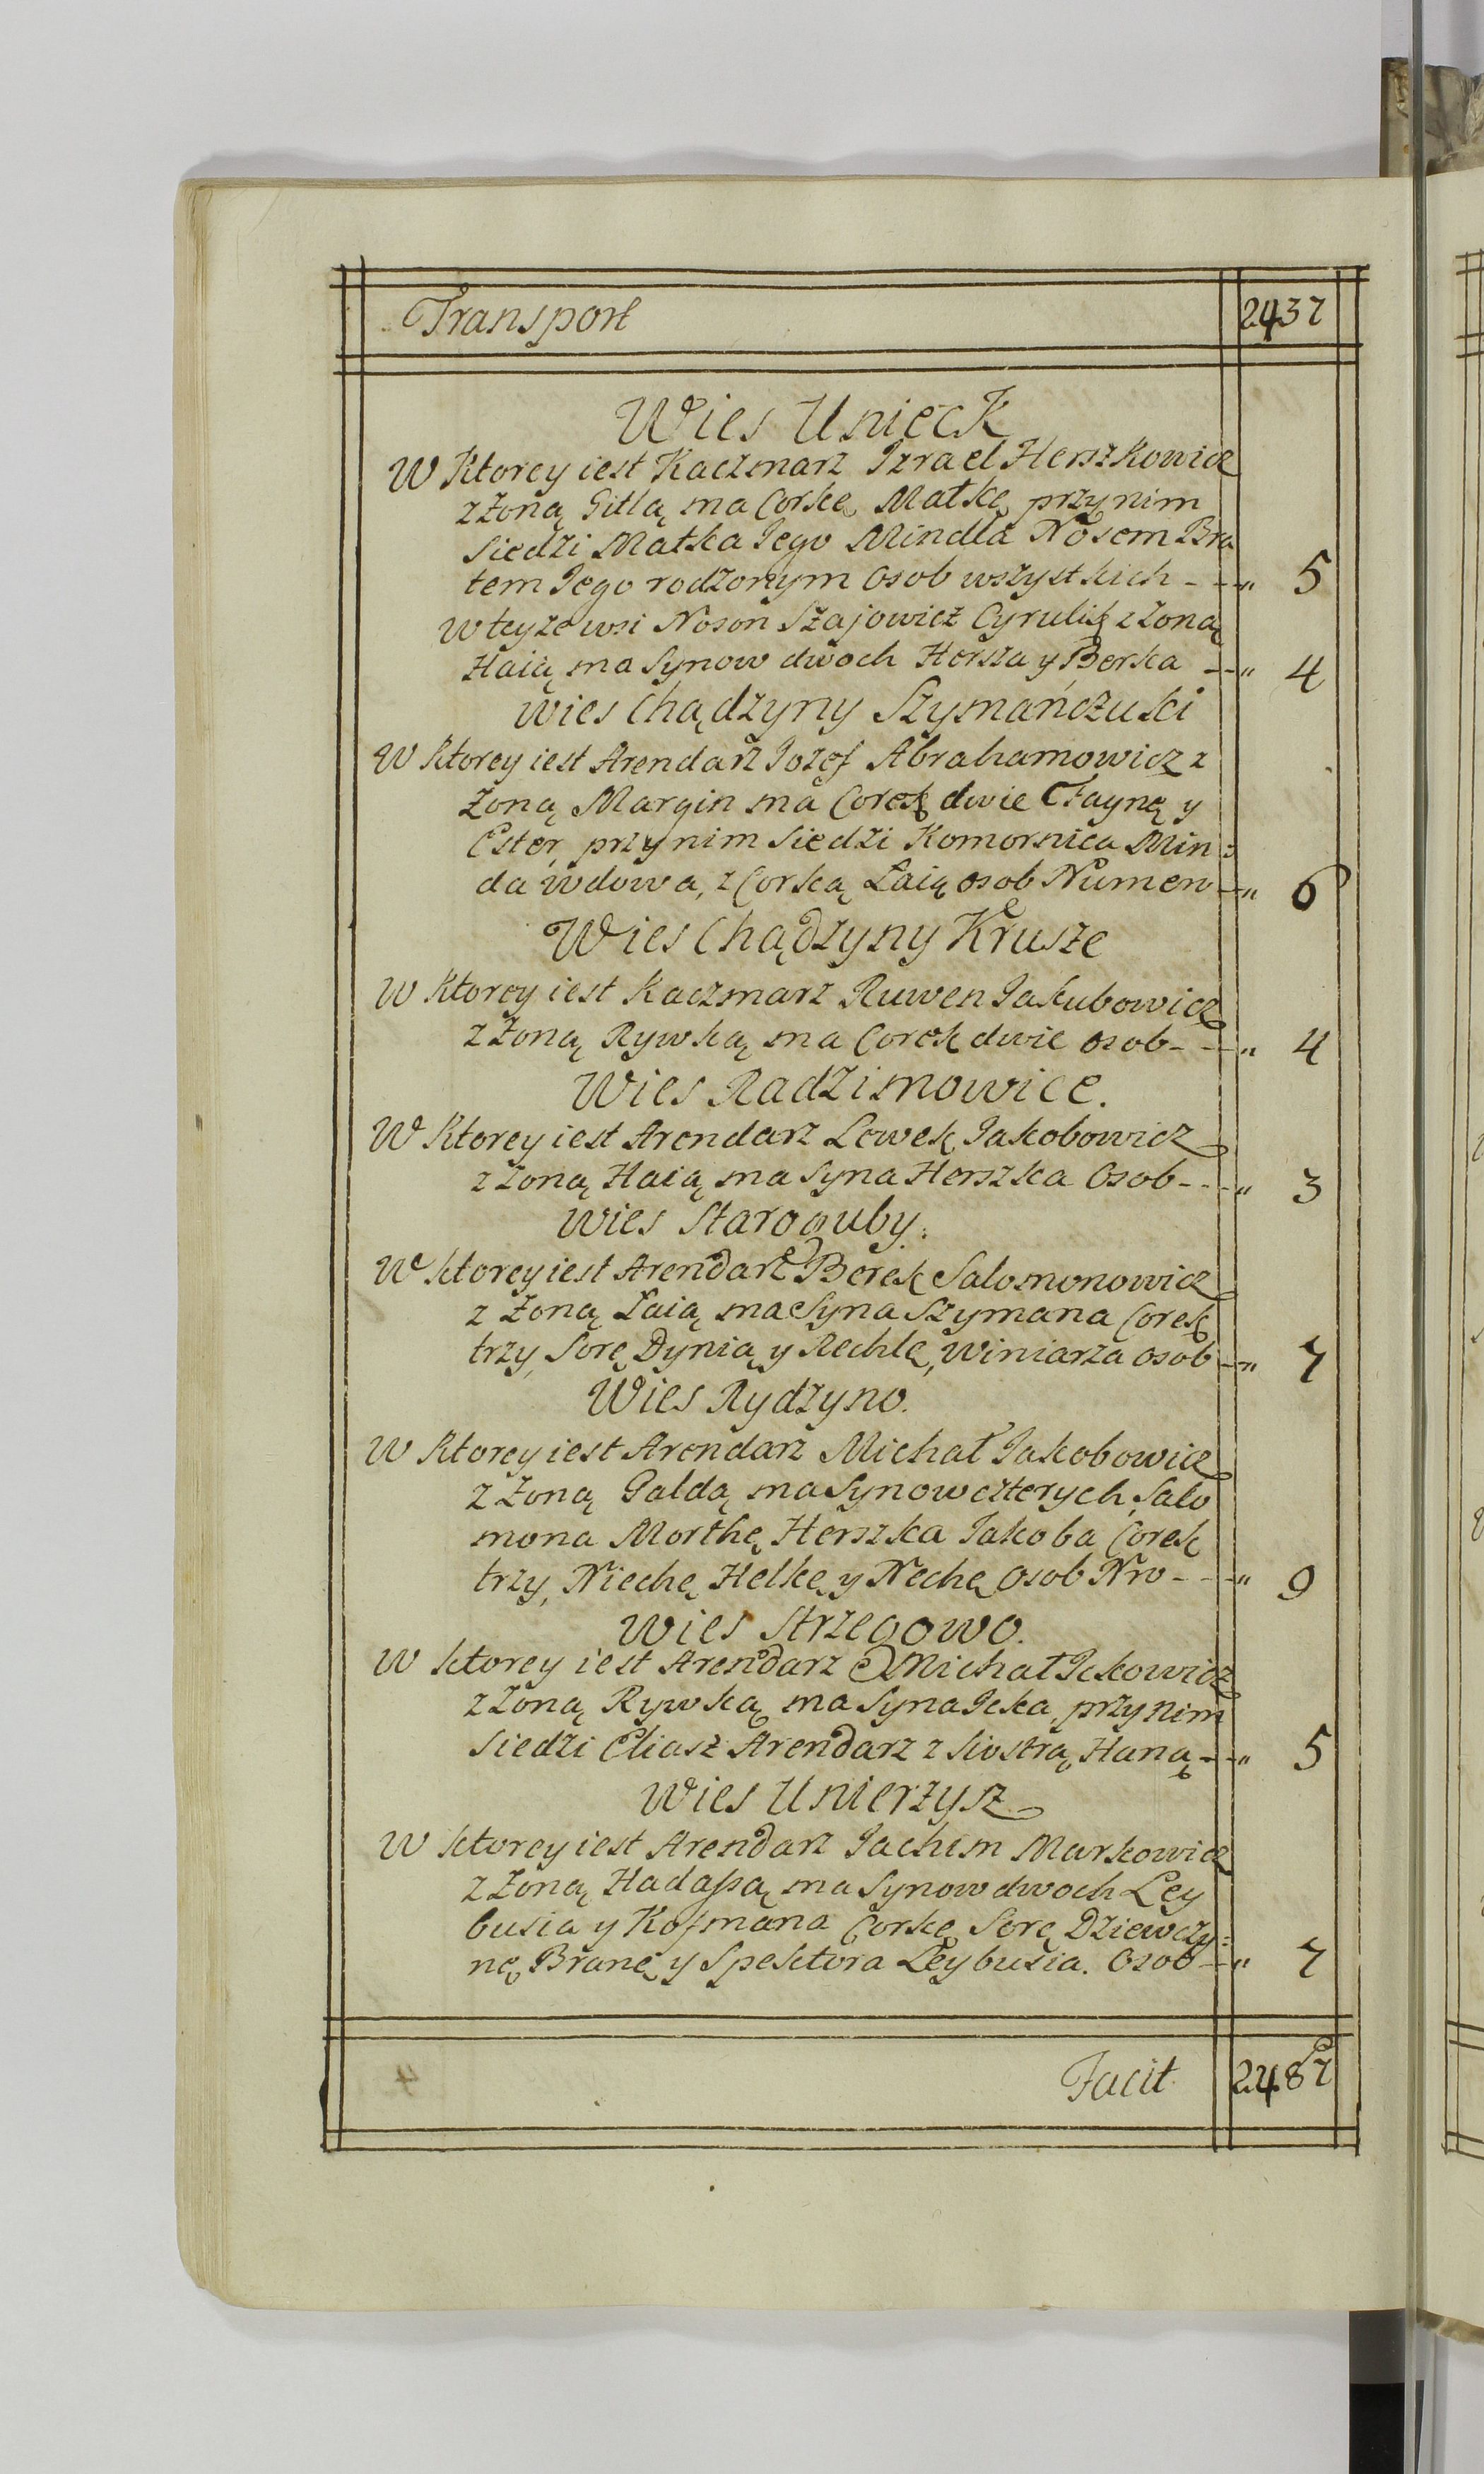 Transport 2437
Wies Unieck
W Ktorey iest Kaczmarz Izrael Herszkowicz
z Zoną Gitlą ma Corkę Matkę przy nim
Siedzi Matka Jego Mindla Nosem Bra
tem Jego rodzonym Osob wszystkich - - -" 5
w teyze wsi Noson Szajowicz Cyrulik z Zoną
Haią ma Synow dwoch Hersza y Berka - -" 4
Wies Chądzyny Szymańczuki
W Ktorey iest Arendarz Jozef Abrahamowicz z
Zoną Margin ma Corek dwie Faynę y
Ester, przy nim Siedzi Komornica Min:
da wdowa, z Corką Łaią osob Numero - -" 6
Wies Chądzyny Krusze
W Ktorey iest Kaczmarz Ruwen Jakubowicz
z Zoną Rywką ma Corek dwie osob - - -" 4
Wies Radzimowice.
W Ktorey iest Arendarz Lewek Jakobowicz
z Zoną Haią ma Syna Herszka Osob - - -" 3
Wies Staroguby.
W Ktorey iest Arendarz Berek Salomonowicz
z Zoną Łaią ma Syna Szymana Corek
trzy, Sorę Dynią y Rechlę, Winiarza osob - -" 7
Wies Rydzyno.
W Ktorey iest Arendarz Michał Jakobowicz
z Zoną Galdą ma Synow czterych, Salo
mona Morthę Herszka Jakoba Corek
trzy, Niechę Helkę y Nechę Osob Nro - - -" 9
Wies Strzegowo.
W Ktorey iest Arendarz Michał Ickowicz
z Zoną Rywką ma Syna Icka, przy nim
Siedzi Eliasz Arendarz z Siostrą Haną - -" 5
Wies Unierzysz
W Ktorey iest Arendarz Jachim Markowicz
z Zoną Hadassą ma Synow dwoch Ley
busia y Kofmana Corkę Sorę Dziewczy:
nę Branę y Spektora Leybusia. Osob - -" 7
Facit 2487